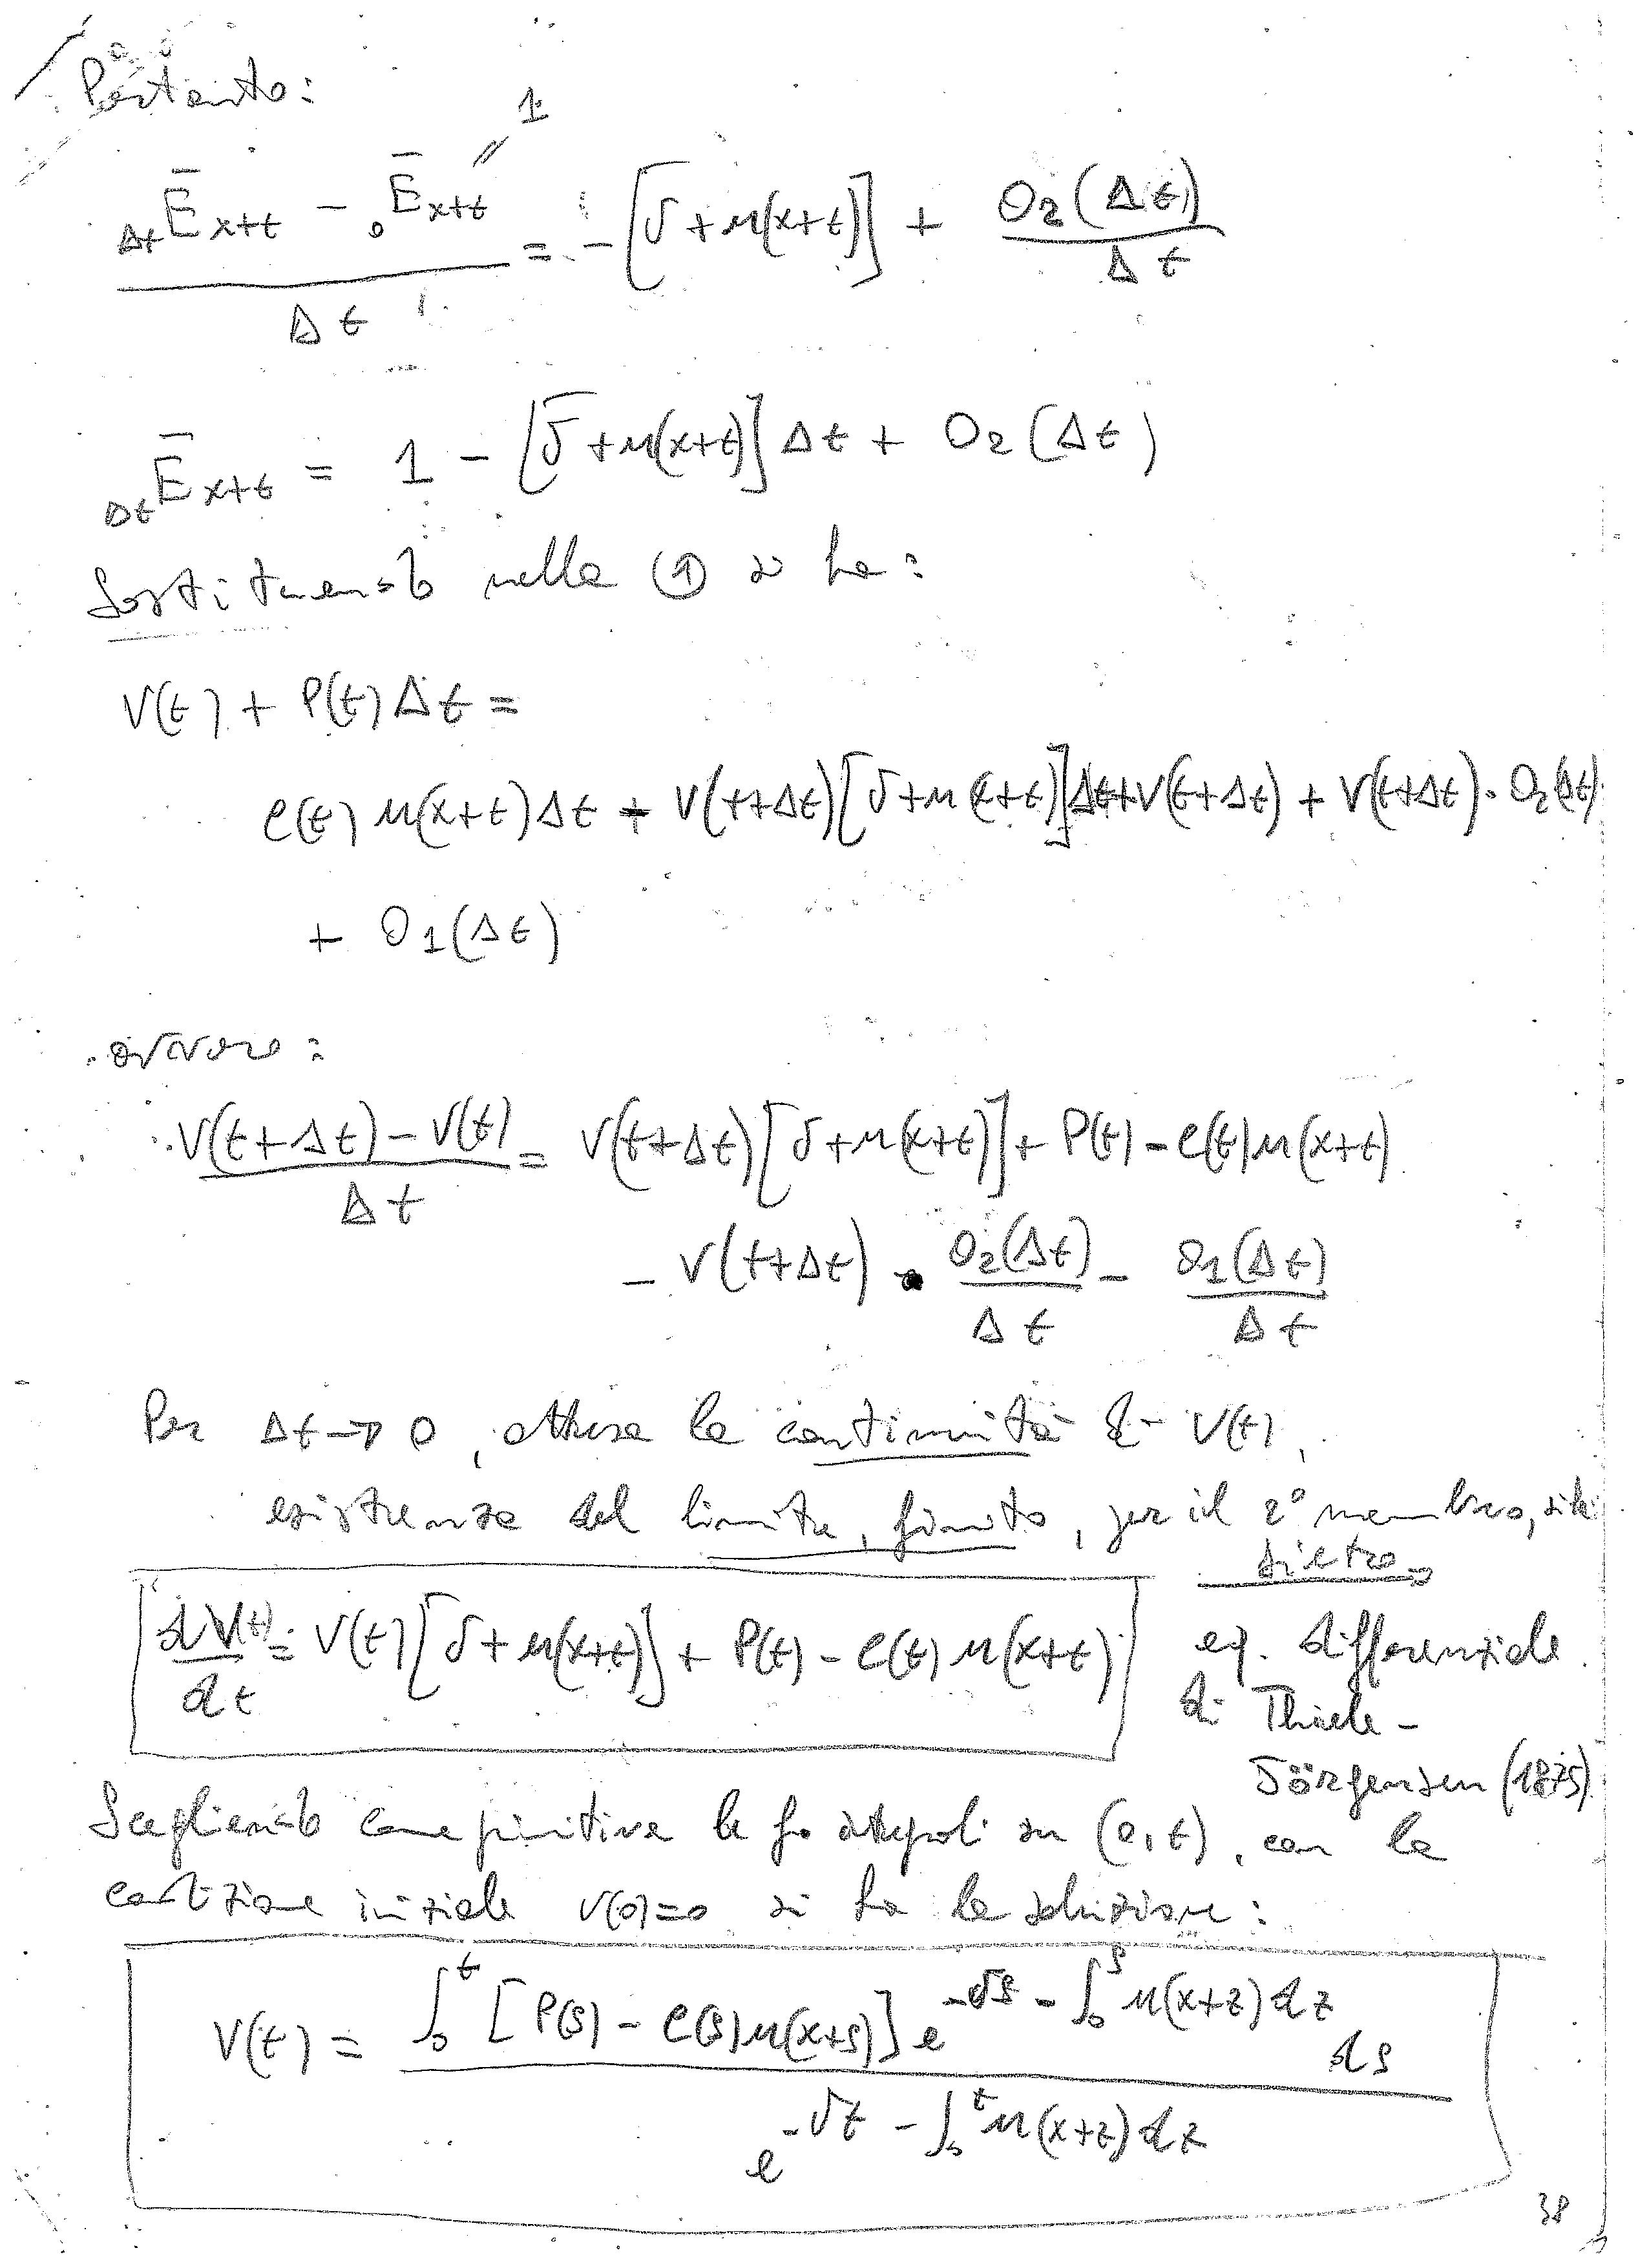 Pertanto:
1
(Δt Ē x+t − 0 Ē x+t) / Δt = − [δ + μ(x+t)] + O2(Δt) / Δt
Δt Ē x+t = 1 − [δ + μ(x+t)] Δt + O2(Δt)
Sostituendo nella (1) si ha:
V(t) + P(t) Δt =
C(t) μ(x+t) Δt − V(t+Δt) [δ + μ(x+t)] Δt + V(t+Δt) + V(t+Δt) · O2(Δt)
+ O1(Δt)
ovvero:
(V(t+Δt) − V(t)) / Δt = V(t+Δt) [δ + μ(x+t)] + P(t) − C(t) μ(x+t)
− V(t+Δt) · O2(Δt) / Δt − O1(Δt) / Δt
Per Δt → 0, attesa la continuità di V(t),
esistenza del limite, finito, per il 2° membro, si ha
dietro →
dV(t) / dt = V(t) [δ + μ(x+t)] + P(t) − C(t) μ(x+t)
eq. differenziale
di Thiele -
Jörgensen (1875)
Scegliendo come primitive le fz integrali su (0,t), con la
condizione iniziale V(0)=0 si ha la soluzione:
V(t) = ∫0^t [P(s) − C(s) μ(x+s)] e^(−δs − ∫0^s μ(x+z) dz) ds / e^(−δt − ∫0^t μ(x+z) dz)
38